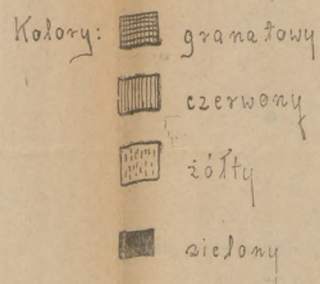 Kolory: granatowy
czerwony
żółty
zielony